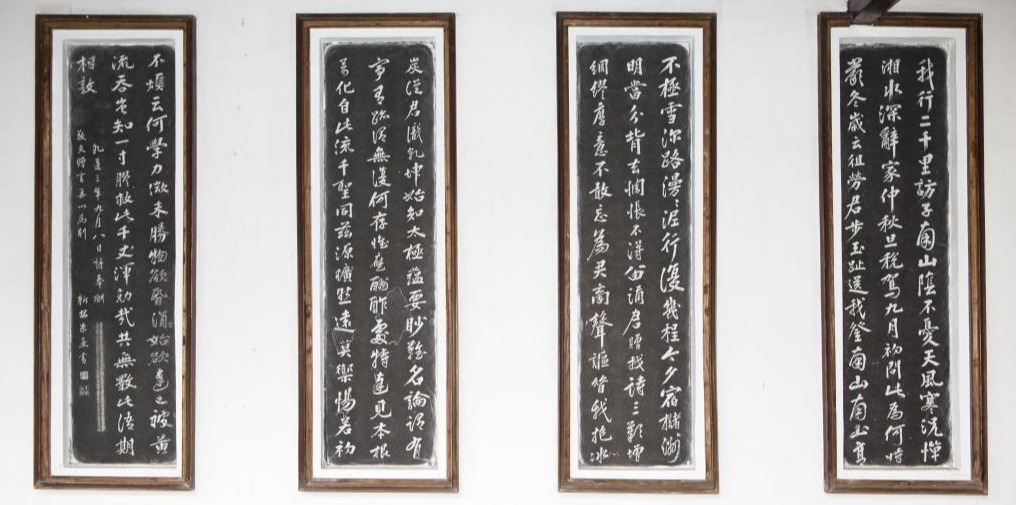 我行二千里訪子南山陰不憂天風寒況憚
湘水深辭家仲秋旦稅駕九月初問此為何時
嚴冬歲云徂勞君步玉趾送我登南山南山高
不極雪深路漫〻泥行復幾程今夕宿櫧洲
明當分背去惆悵不得留誦君贈我詩三歎增
綢繆厚意不敢忘為君商聲謳昔我抱冰
炭從君識乾坤始知太極蘊要眇難名論謂有
寧有跡謂無復何存惟應酬酢處特達見本根
萬化自此流千聖同茲源曠然遠莫禦惕若初
不煩云何學力微未勝物欲昏涓〻始欲達已被黃
流吞豈知一寸膠救此千丈渾勉哉共無斁此語期
相敦
乾道三年九月八日詩奉酬
敬夫贈言并以為別 新安朱熹書